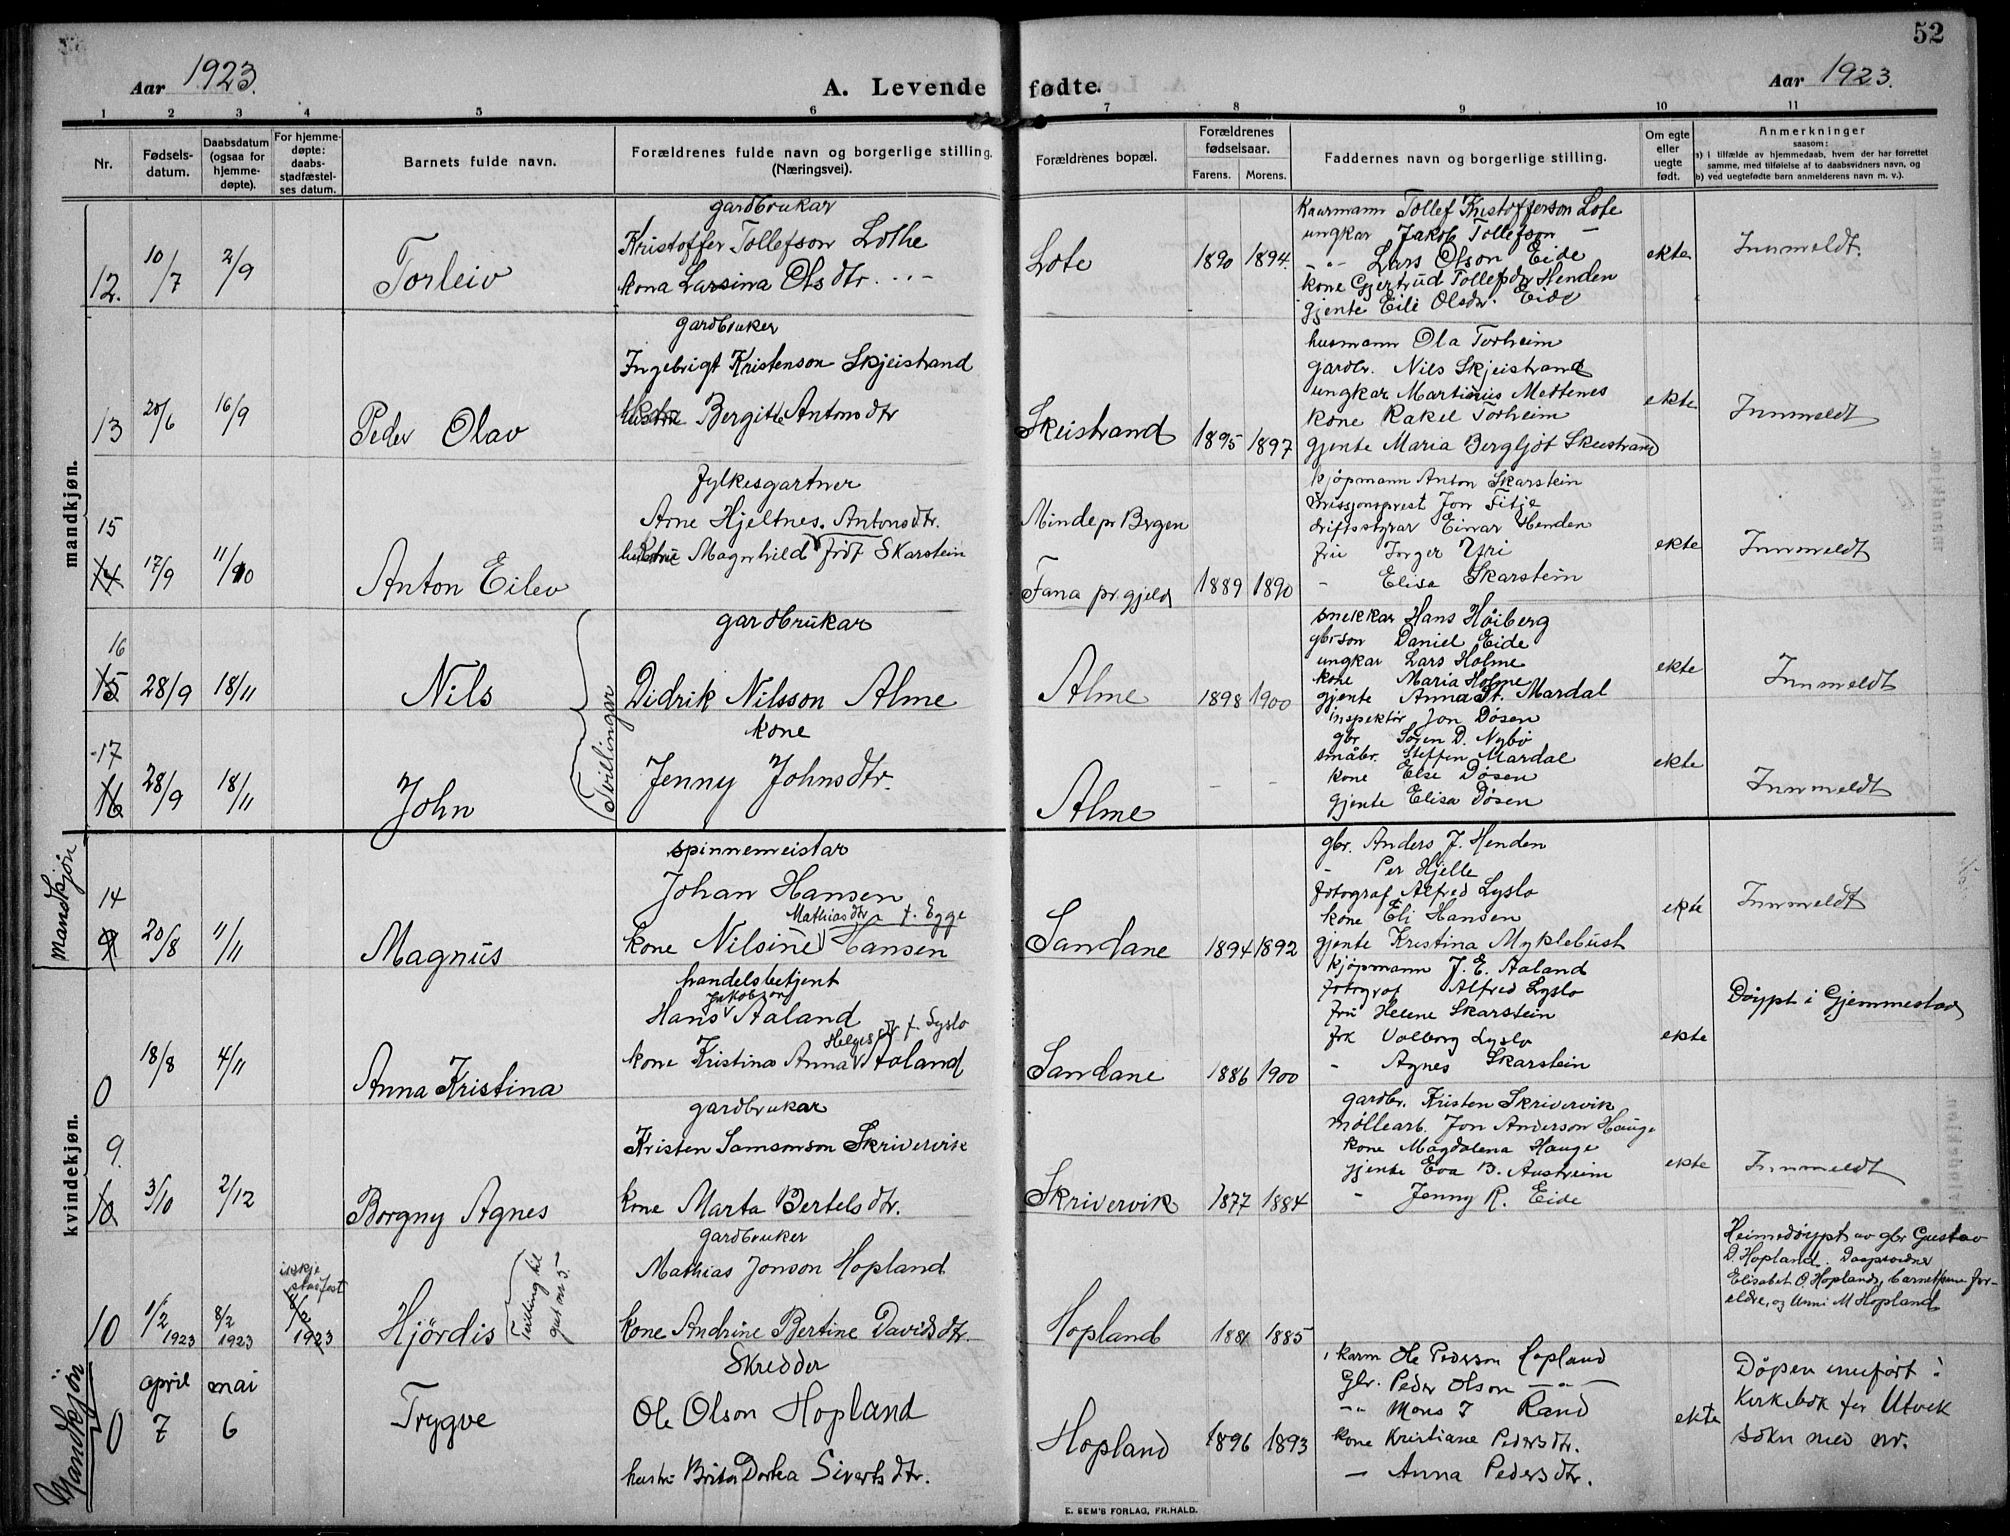 52
Aar 1923.
A. Levende fødte.
Aar 1923.
1 2 3 4 5 6 7 8 9 10 11
Nr.
Fødsels-
datum.
Daabsdatum
(ogsaa for
hjemme-
døpte).
For hjemme-
døpte:
daabs-
stadfæstel-
ses datum.
Barnets fulde navn.
Forældrenes fulde navn og borgerlige stilling.
(Næringsvei).
Forældrenes bopæl.
Forældrenes
fødselsaar.
Farens. Morens.
Faddernes navn og borgerlige stilling.
Om egte
eller
uegte
født.
Anmerkninger
saasom:
a) i tilfælde av hjemmedaab, hvem der har forrettet
samme, med tilføielse af to daabsvidners navn, og
b) ved uegtefødte barn anmelderens navn m. v.).
mandkjøn.
12. 10/7 2/9 Torleiv
gardbrukar
Kristoffer Tollefson Lothe
kona Larsina Olsdtr. . . –
Lote 1890 1894.
Kaarmann Tollef Kristofferson Lote
ungkar Jakob Tollefson –
– " – Lars Olson Eide
kone Gjertrud Tollefsdtr Henden
gjente Eili Olsdtr. Eide
ekte Innmeldt.
13 20/6 16/9 Peder Olav
gardbruker
Ingebrigt Kristenson Skjeistrand
Bergitte Antonsdtr
Skeistrand 1895 1897
husmann Ola Torheim
gardbr. Nils Skjeistrand
ungkar Martinus Mettenes
kone Rakel Torheim
gjente Maria Bergljot Skeistrand
ekte Innmeldt
15
14 17/9 11/10 Anton Eilev
fylkesgartner
Arne Hjeltnes. Antonsdtr.
Magnhild født Skarstein
Minde pr Bergen
Fana pr.gjeld 1889 1890
kjøpmann Anton Skarstein
missjonsprest Jon Fitje
driftsstyrar Einar Henden
fru Inger Yri
– Elisa Skarstein
ekte Innmeldt
16
15 28/9 18/11 Nils
Tvillingar
gardbrukar
Didrik Nilsson Alme
kone
Jenny Johnsdtr.
Alme 1898 1900
snekkar Hans Høiberg
gbrson Daniel Eide
ungkar Lars Holme
kone Maria Holme
gjente Anna St. Mardal
ekte Innmeldt
17
16 28/9 18/11 John
Alme – –
inspektør Jon Døsen
gbr Søren D. Nybø
småbr. Steffen Mardal
kone Else Døsen
gjente Elisa Døsen
ekte Innmeldt
Mandkjøn
14
9 20/8 11/11 Magnus
spinnemeistar
Johan Hansen
Mathiasdtr f. Egge
kone Nilsine Hansen
Sandane 1894 1892
gbr. Anders J. Henden
– Per Hjelle
fotograf Alfred Lyslo
kone Eli Hansen
gjente Kristina Myklebust
ekte Innmeldt
kvindekjøn.
0 18/8 4/11 Anna Kristina
handelsbetjent
Jakobson
Hans Aaland
Helgesdtr f. Lyslo
kone Kristina Anna Aaland
Sandane 1886 1900
kjøpmann J. E. Aaland
fotograf Alfred Lyslo
fru Helene Skarstein
frk Valborg Lyslo
– Agnes Skarstein
ekte Døypt i Gjemmestad
9.
10 3/10 2/12 Borgny Agnes
gardbrukar
Kristen Samsonson Skrivervik
kone Marta Bertelsdtr.
Skrivervik 1877 1884
gardbr. Kristen Skrivervik
møllearb. Jon Anderson Hauge
kone Magdalena Hauge
gjente Eva B. Austreim
– Jenny R. Eide
ekte Innmeldt
10 1/2 1923 8/2 1923
ikkje
stadfest
1923
Hjördis
Tvilling til
gut nr 5
gardbruker
Mathias Jonson Hopland
kone Andrine Bertine Davidsdtr.
Hopland 1881 1885
Heimedøypt av gbr Gustav
D. Hopland. Daapsvidner
Elisabet O Hopland, barnet sine for-
eldre, og Unni M Hopland
Mandkjön
0 april 7 mai 6 Trygve
Skredder
Ole Olson Hopland
hustru Brita Dortea Sivertsdtr.
Hopland 1896 1893
karm Ole Pederson Hopland
Gbr. Peder Olson – " –
– " Mons J Rand
kone Kristiane Pedersdtr.
– Anna Pedersdtr.
ekte
Döpen innført i
Kirkebok for Utvik
sokn med nr.
E. SEM'S FORLAG, FR.HALD.